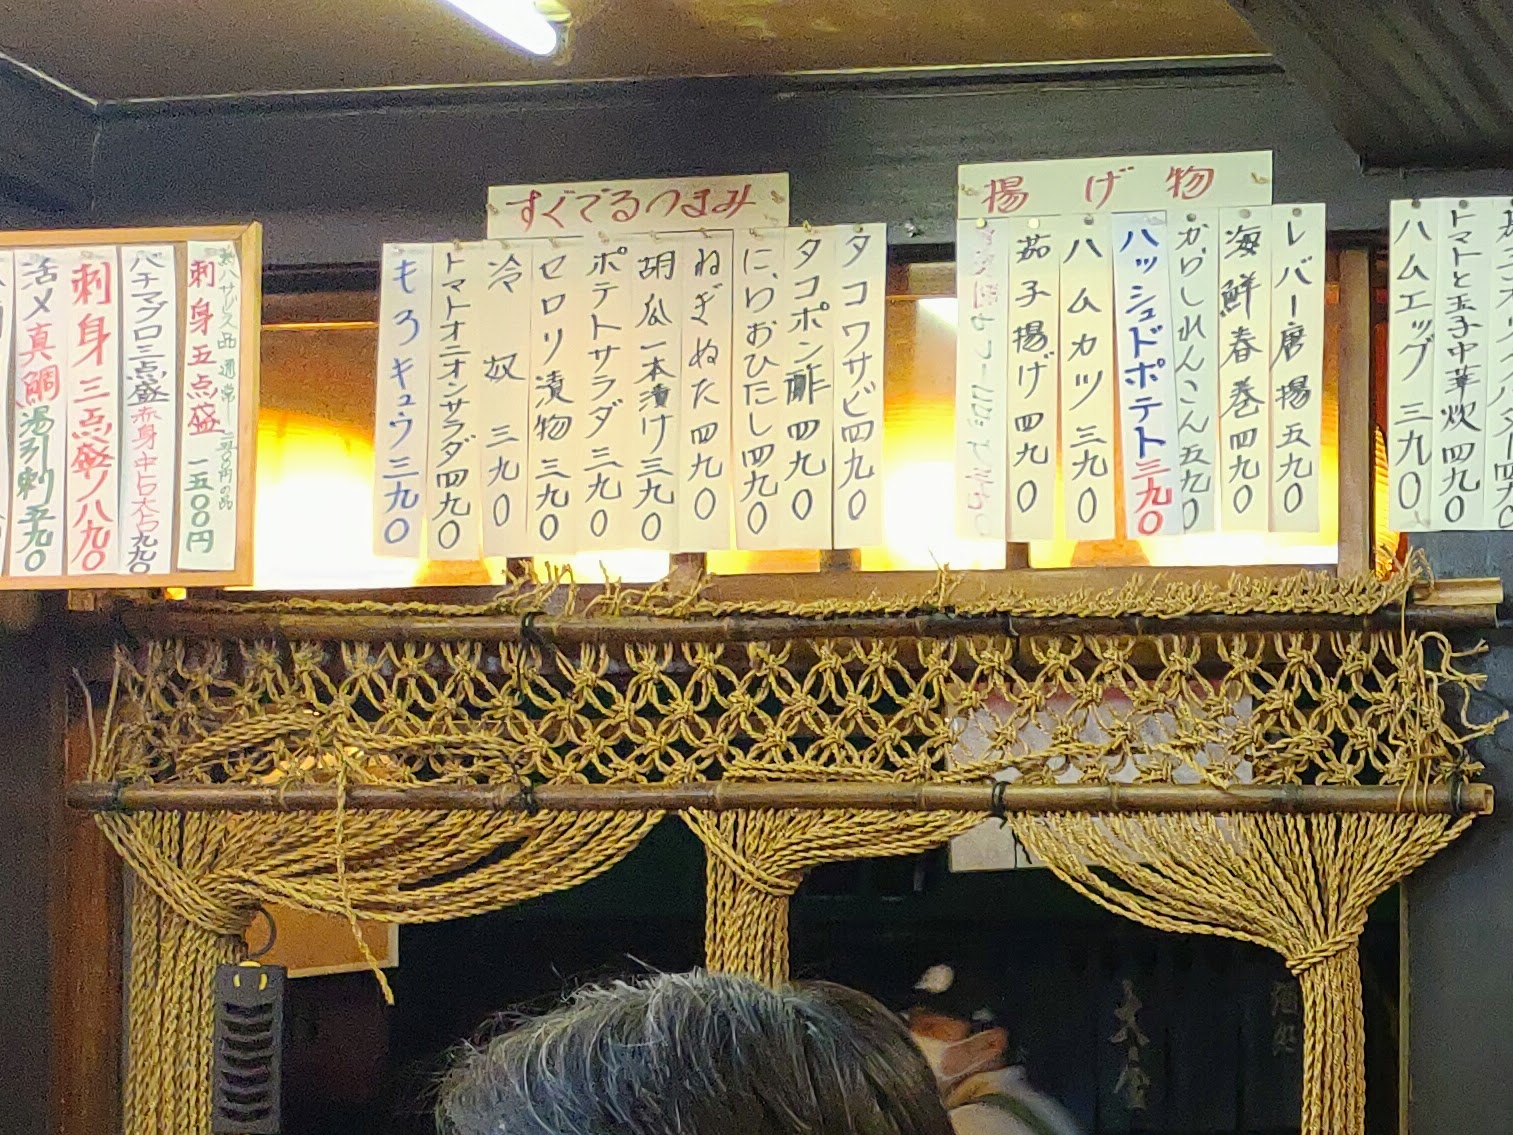 すぐでるつまみ
タコワサビ四九〇
タコポン酢四九〇
にらおひたし四九〇
ねぎぬた四九〇
胡瓜一本漬け三九〇
ポテトサラダ三九〇
セロリ漬物三九〇
冷奴三九〇
トマトオニオンサラダ四九〇
もろキュウ三九〇
揚げ物
レバー唐揚五九〇
海鮮春巻四九〇
からしれんこん五九〇
ハッシュドポテト三九〇
ハムカツ三九〇
茄子揚げ四九〇
トマトと玉子中華炊四九〇
ハムエッグ三九〇
刺身五点盛
一五〇〇円
バチマグロ三点盛赤身中トロ大トロ九九〇
刺身三点盛ノ八九〇
活〆真鯛湯引刺五九〇